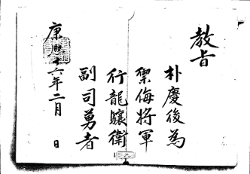 教旨
朴慶後為
禦侮將軍
行龍驤衛
副司勇者
康熙十六年二月 日